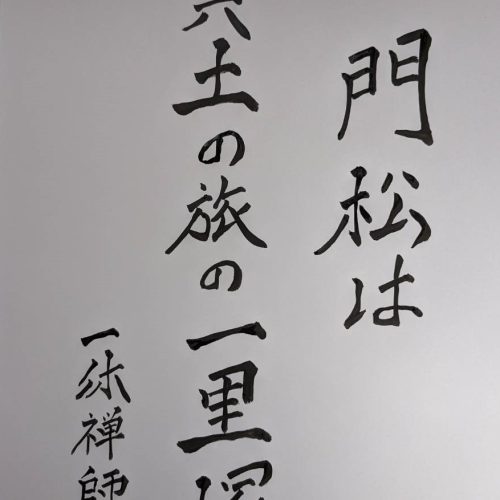 門松は
土の旅の一里
一休禅師